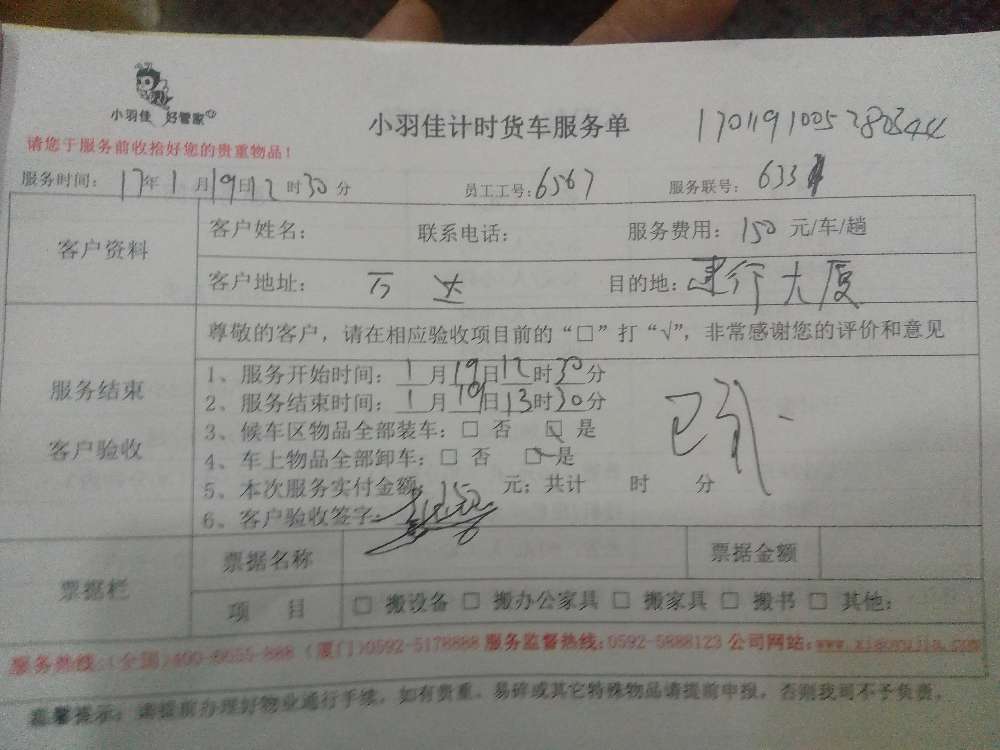 小羽佳 好管家
小羽佳计时货车服务单
请您于服务前收拾好您的贵重物品！
服务时间：17年1月19日12时30分 员工工号：6567 服务联号：633
客户资料
客户姓名： 联系电话： 服务费用：150元/车/趟
客户地址：万达 目的地：建行大厦
尊敬的客户，请在相应验收项目前的“□”打“√”，非常感谢您的评价和意见
服务结束
客户验收
1、服务开始时间：1月19日12时30分
2、服务结束时间：1月19日13时30分
3、候车区物品全部装车：□ 否 ☑ 是
4、车上物品全部卸车：□ 否 ☑ 是
5、本次服务实付金额：150元；共计 时 分
6、客户验收签字：
票据栏
票据名称 票据金额
项 目 □ 搬设备 □ 搬办公家具 □ 搬家具 □ 搬书 □ 其他：
服务热线：（全国）400-6655-888（厦门）0592-5178888 服务监督热线：0592-5888123 公司网站：www.xiaoyujia.com
温馨提示：请提前办理好物业通行手续，如有贵重、易碎或其它特殊物品请提前申报，否则我司不予负责。